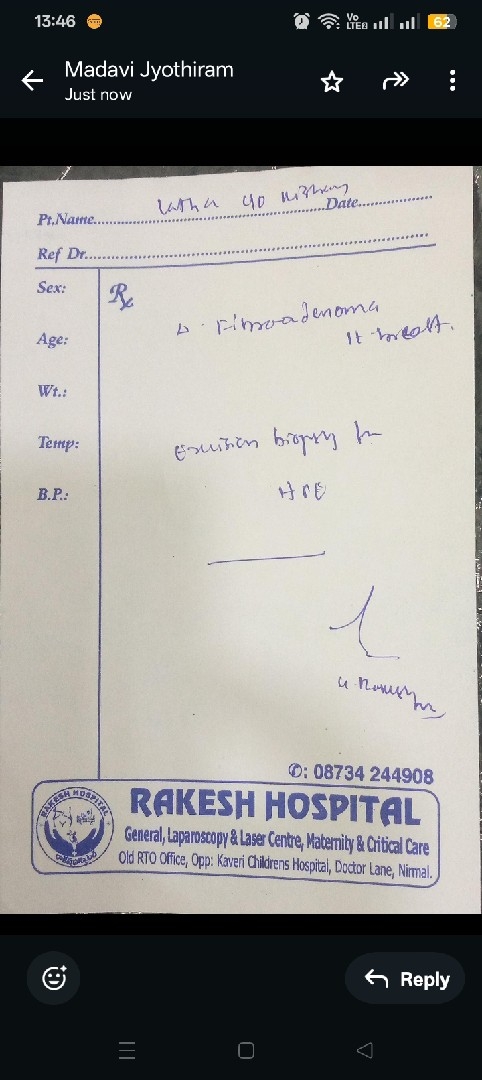 13:46
Vo
LTE2
62
Madavi Jyothiram
Just now
Pt.Name..........Date..........
Latha
Ref Dr..........
Sex:
Rx
Age:
Δ. Fibroadenoma
breast.
Wt.:
Temp:
Excision biopsy for
B.P.:
HPE
✆: 08734 244908
RAKESH HOSPITAL
RAKESH HOSPITAL
General, Laparoscopy & Laser Centre, Maternity & Critical Care
Old RTO Office, Opp: Kaveri Childrens Hospital, Doctor Lane, Nirmal.
Reply